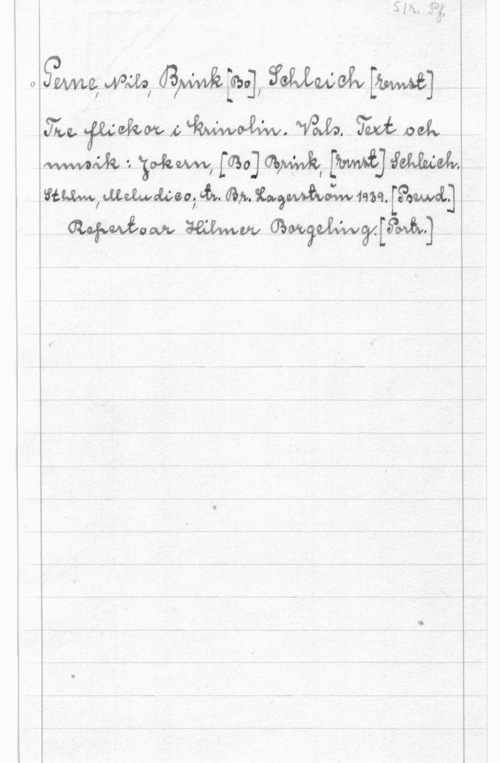 S/n. Pf.
Perne, Nils, Brink [Bo], Schleich [Ernst]
Tre flickor i krinolin. Vals. Text och
musik: Jokern, [Bo] Brink, [Ernst] Schleich.
Sthlm, Meludico; tr. Br. Lagerström 1939. [Pseud.]
Repertoar Hilmer Borgeling. [Portr.]